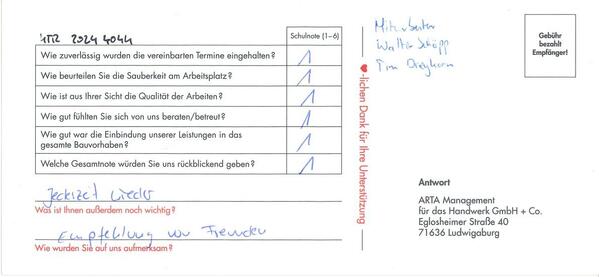 HTR 2024 4044
Schulnote (1–6)
Wie zuverlässig wurden die vereinbarten Termine eingehalten?
1
Wie beurteilen Sie die Sauberkeit am Arbeitsplatz?
1
Wie ist aus Ihrer Sicht die Qualität der Arbeiten?
1
Wie gut fühlten Sie sich von uns beraten/betreut?
1
Wie gut war die Einbindung unserer Leistungen in das
gesamte Bauvorhaben?
1
Welche Gesamtnote würden Sie uns rückblickend geben?
1
Jeckizet wieder
Was ist Ihnen außerdem noch wichtig?
Empfehlung von Freunden
Wie wurden Sie auf uns aufmerksam?
-lichen Dank für Ihre Unterstützung
Mitarbeiter
Walter
Tim
Gebühr
bezahlt
Empfänger!
Antwort
ARTA Management
für das Handwerk GmbH + Co.
Eglosheimer Straße 40
71636 Ludwigaburg